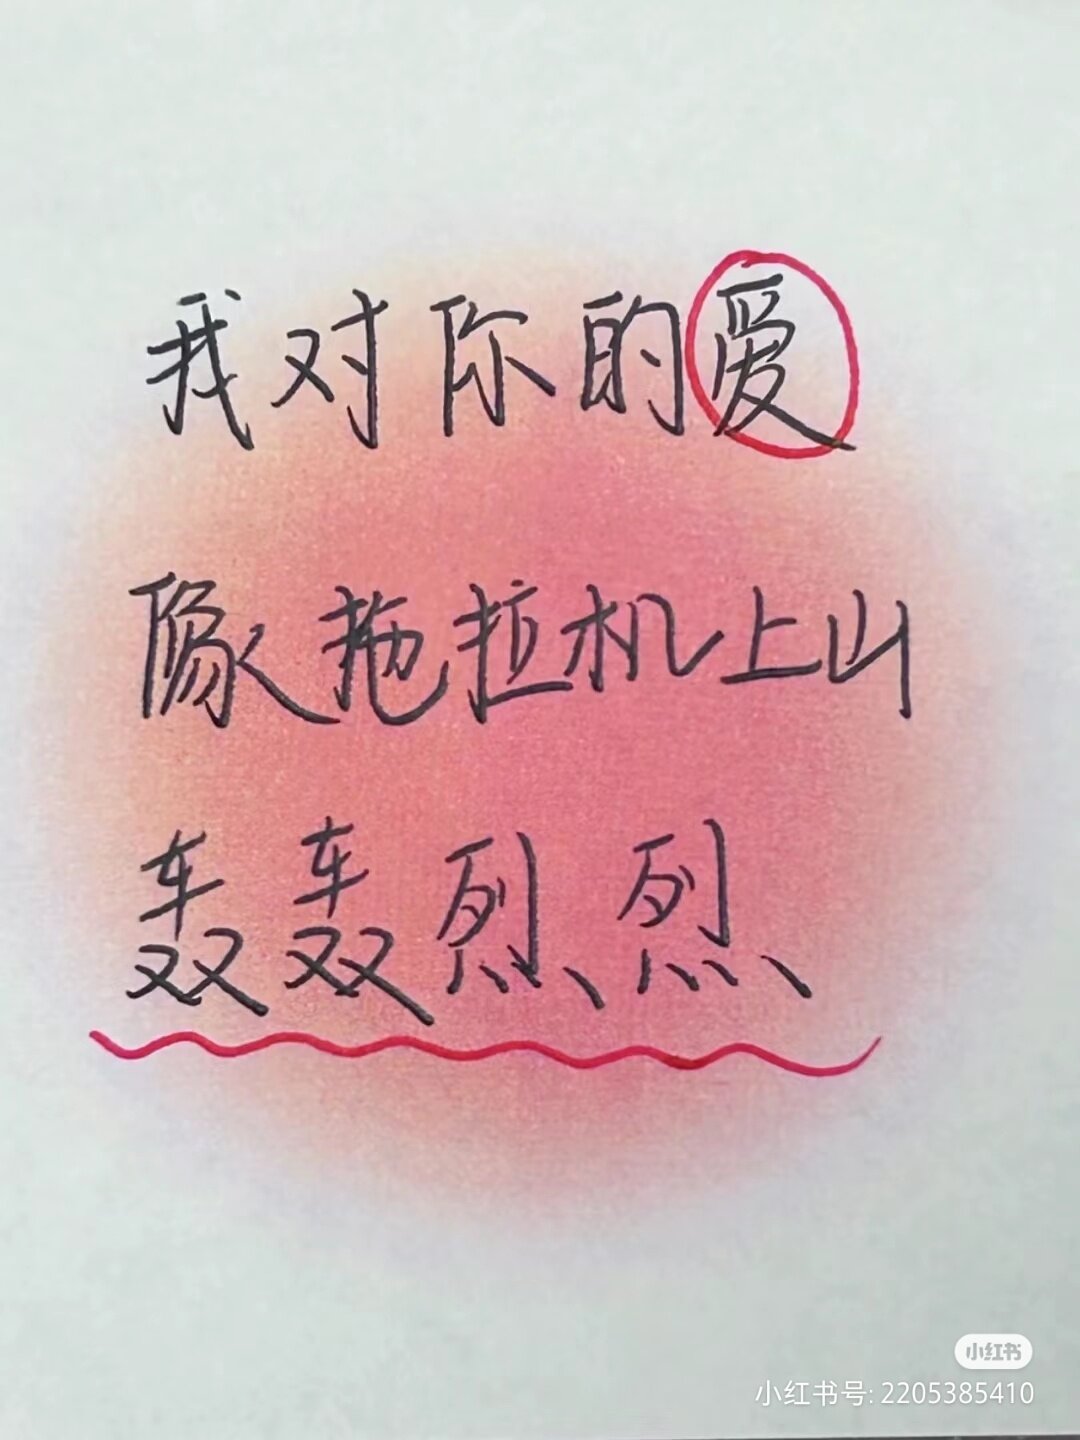 我对你的爱
像拖拉机上山
轰轰烈烈
小红书
小红书号: 2205385410